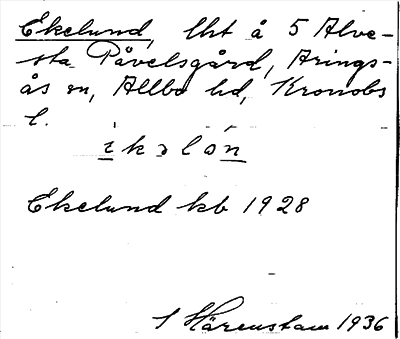 Ekelund, lht å 5 Alve-
sta Påvelsgård, Arings-
ås sn, Allbo hd, Kronobs
l.
ikəlón
Ekelund kb 1928
S Härenstam 1936